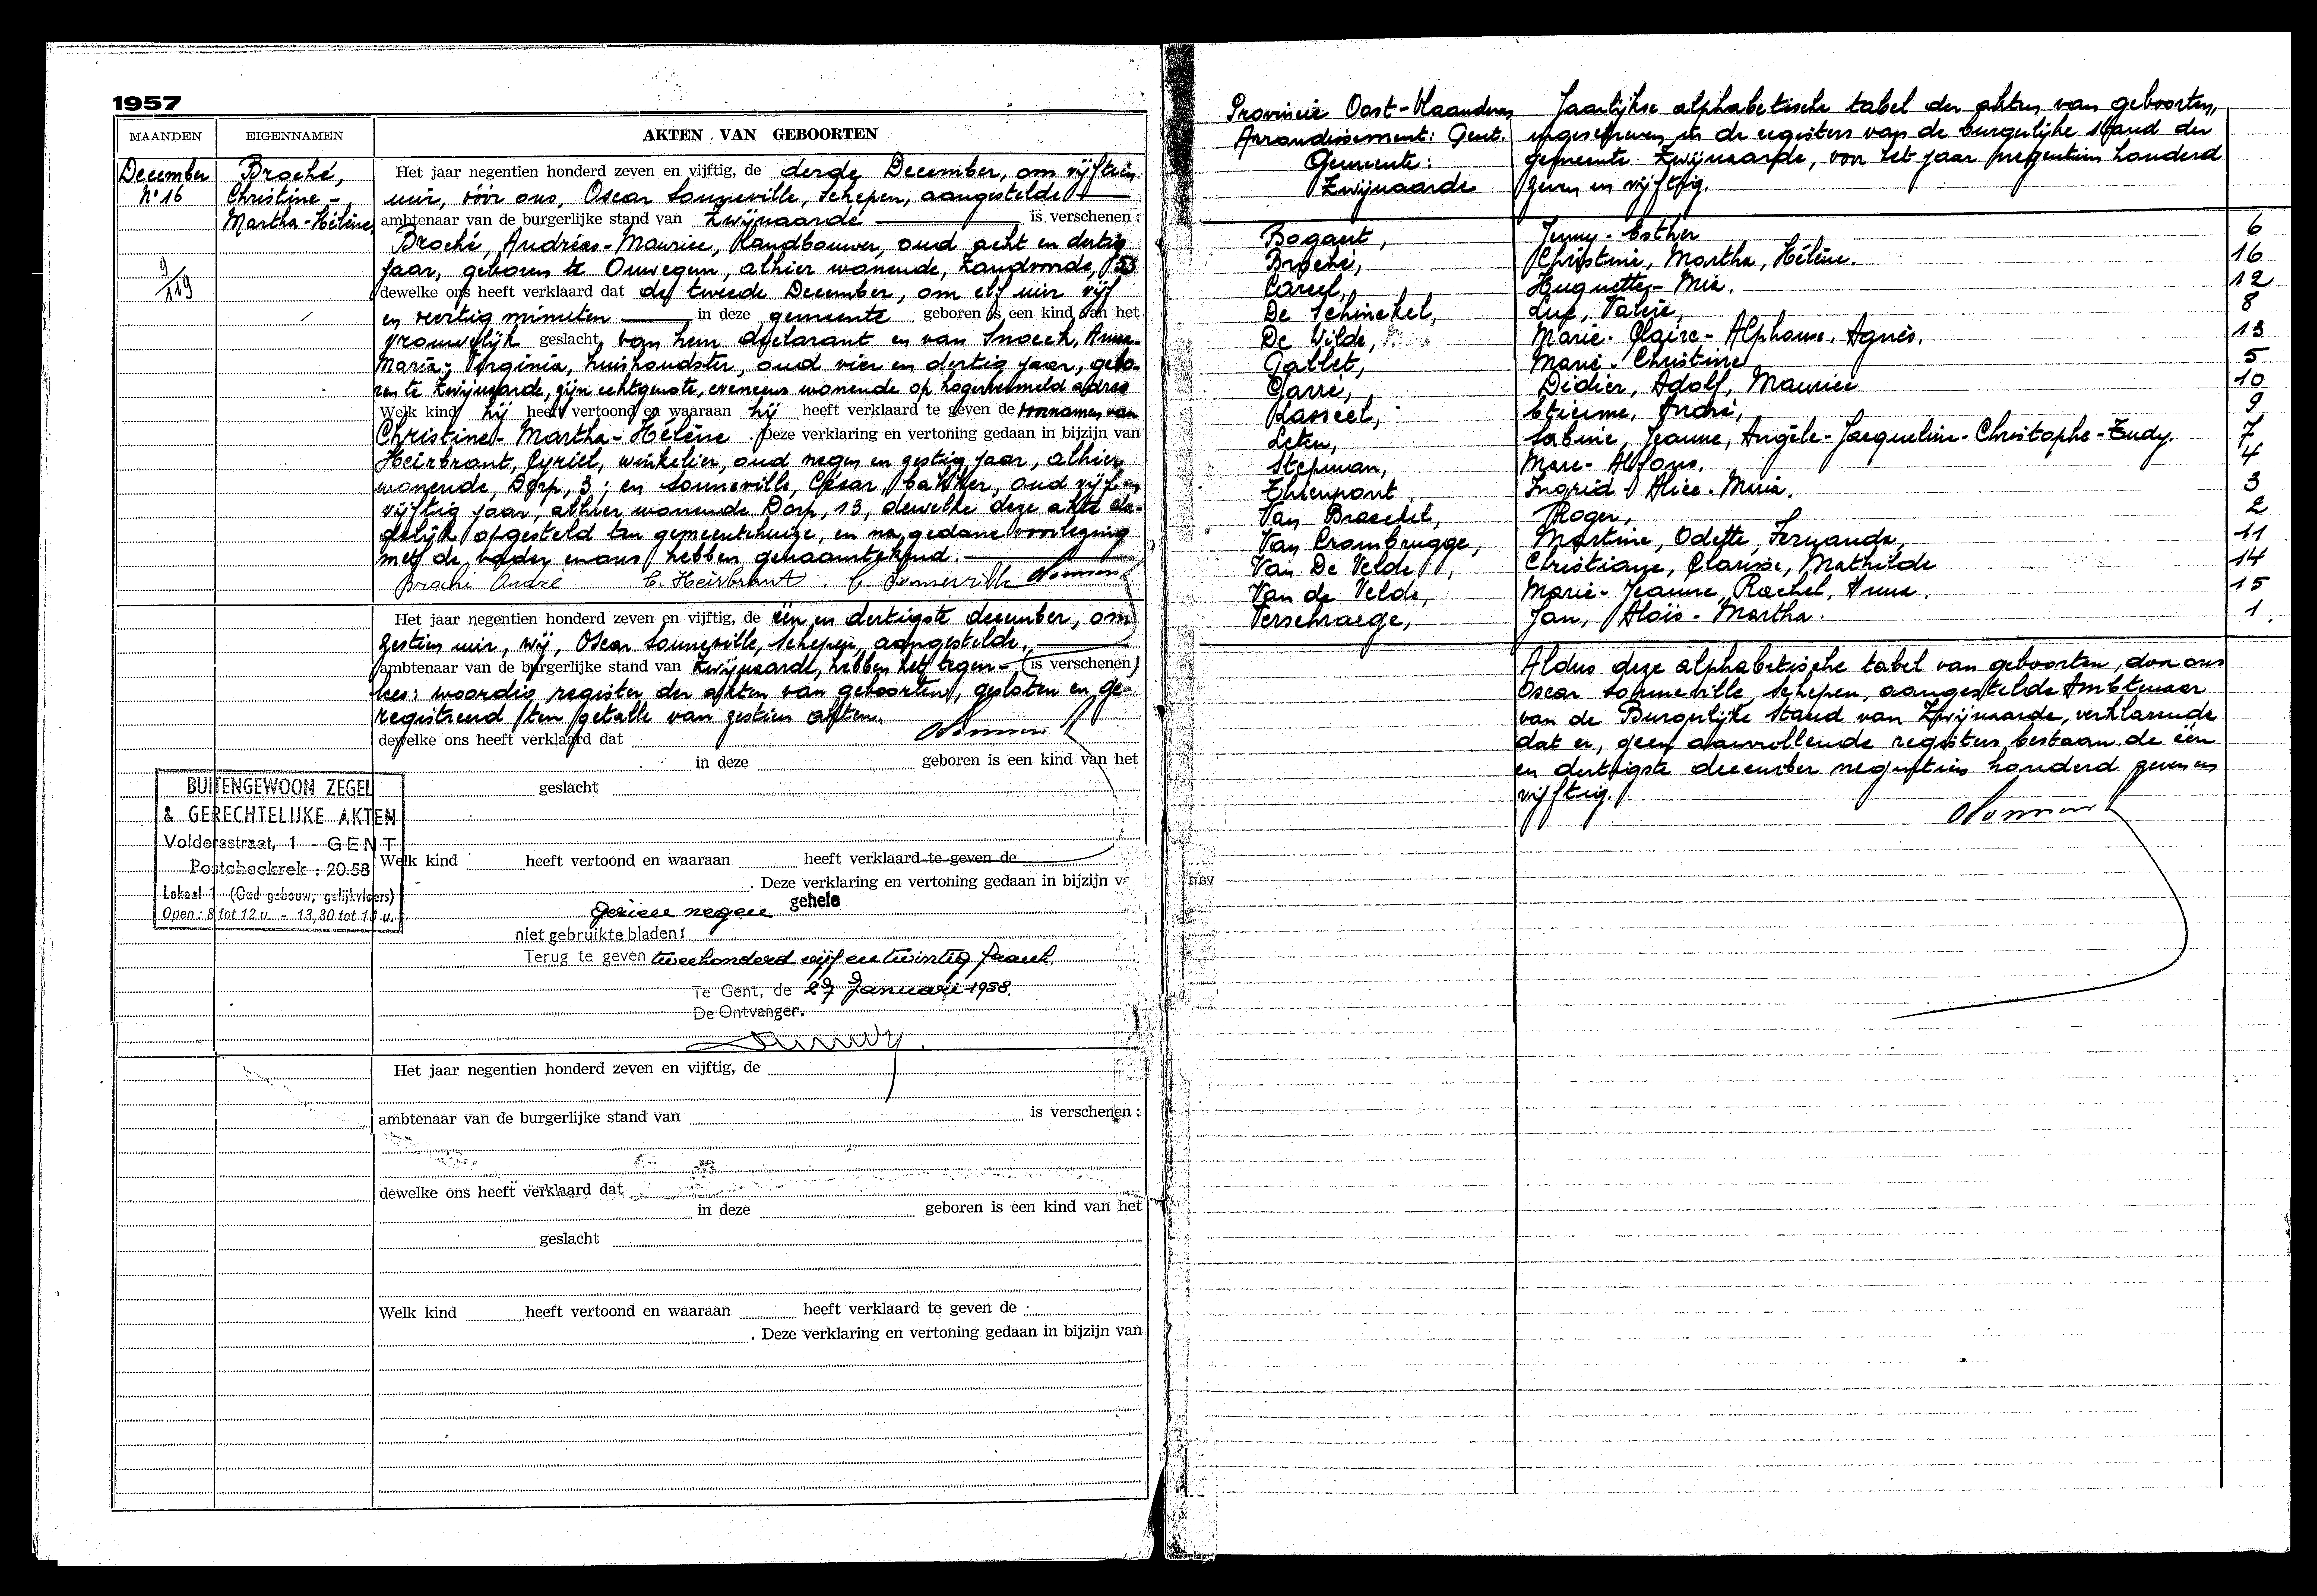 1957
MAANDEN EIGENNAMEN AKTEN VAN GEBOORTEN
December Broché, Het jaar negentien honderd zeven en vijftig, de derde December, om vijftien
N° 16 Christine - uur, vóór ons, Oscar Sonneville, Schepen, aangestelde
Martha-Hélène ambtenaar van de burgerlijke stand van Zwijnaarde is verschenen :
Broché, Andréas-Maurice, landbouwer, oud acht en dertig
jaar, geboren te Ouwegem, alhier wonende, Zandvoorde, 53
9/119 dewelke ons heeft verklaard dat de tweede December, om elf uur vijf
en veertig minuten in deze gemeente geboren is een kind van het
vrouwelijk geslacht, van hem declarant en van Snoeck, Anna-
Maria-Virginia, huishoudster, oud vier en dertig jaar, gebo-
ren te Zwijnaarde, zijn echtgenote, eveneens wonende op hogervermeld adres
Welk kind hij heeft vertoond en waaraan hij heeft verklaard te geven de voornamen van
Christine-Martha-Hélène . Deze verklaring en vertoning gedaan in bijzijn van
Heirbrant, Cyriel, winkelier, oud negen en zestig jaar, alhier
wonende, Dorp, 3; en Sonneville, Cesar, bakker, oud vijf en
vijftig jaar, alhier wonende Dorp, 13, dewelke deze akte da-
delijk opgesteld ten gemeentehuize, en na gedane voorlezing
met de vader en ons hebben genaamtekend.
Broché André C. Heirbrant C. Sonneville
Het jaar negentien honderd zeven en vijftig, de één en dertigste december, om
zestien uur, wij, Oscar Sonneville, Schepen, aangestelde,
ambtenaar van de burgerlijke stand van Zwijnaarde, hebben het tegen- (is verschenen)
lees: woordig register der akten van geboorten, gesloten en ge-
registreerd ten getalle van zestien akten.
dewelke ons heeft verklaard dat
in deze geboren is een kind van het
geslacht
BUITENGEWOON ZEGEL
& GERECHTELIJKE AKTEN
Voldersstraat, 1 - GENT
Postcheckrek : 20.58
Lokaal 1 (Oud gebouw, gelijkvloers)
Open : 8 tot 12 u. - 13,30 tot 16 u.
Welk kind heeft vertoond en waaraan heeft verklaard te geven de
. Deze verklaring en vertoning gedaan in bijzijn
negen gehele
niet gebruikte bladen:
Terug te geven tweehonderd vijf en twintig frank.
Te Gent, de 27 Januari 1958.
De Ontvanger.
Het jaar negentien honderd zeven en vijftig, de
ambtenaar van de burgerlijke stand van is verschenen :
dewelke ons heeft verklaard dat
in deze geboren is een kind van het
geslacht
Welk kind heeft vertoond en waaraan heeft verklaard te geven de
. Deze verklaring en vertoning gedaan in bijzijn van
Provincie Oost-Vlaanderen Jaarlijkse alphabetische tabel der akten van geboorten,
Arrondissement: Gent. ingeschreven in de registers van de burgerlijke stand der
Gemeente: gemeente Zwijnaarde, voor het jaar negentien honderd
Zwijnaarde zeven en vijftig.
Bogaert, Jenny-Esther 6
Broché, Christine, Martha, Hélène. 16
Careel, Huguette-Mia. 12
De Schinckel, Luc, Valère, 8
De Wilde, Marie-Claire-Alphonse, Agnès. 13
Gallet, Marie-Christine 5
Garré, Didier, Adolf, Maurice 10
Kasseel, Etienne, André, 9
Leten, Sabine, Jeanne, Angèle-Jacqueline-Christophe-Rudy. 7
Stepman, Marc-Alfons. 4
Thienpont Ingrid-Alice-Maria. 3
Van Braeckel, Roger, 2
Van Crombrugge, Martine, Odette, Fernanda, 11
Van De Velde, Christiane, Clarisse, Mathilde 14
Van de Velde, Marie-Jeanne, Rachel, Anna. 15
Verschraege, Jan, Aloïs-Martha. 1.
Aldus deze alphabetische tabel van geboorten, door ons
Oscar Sonneville, Schepen, aangestelde Ambtenaar
van de Burgerlijke Stand van Zwijnaarde, verklarende
dat er, geen aanvullende registers bestaan, de één
en dertigste december negentien honderd zeven en
vijftig.